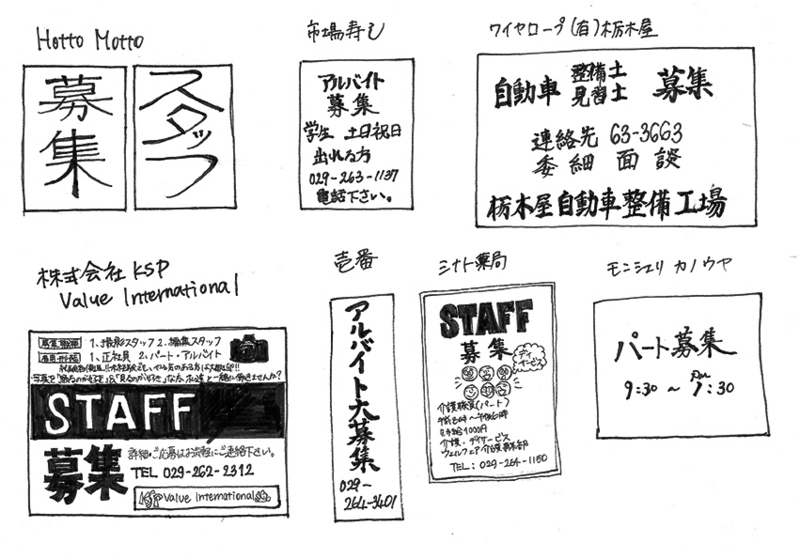 Hotto Motto
スタッフ
募集
市場寿し
アルバイト
募集
学生 土日祝日
出れる方
029-263-1137
電話下さい。
ワイヤロープ(有)栃木屋
自動車 整備士 見習士 募集
連絡先 63-3663
委細面談
栃木屋自動車整備工場
株式会社KSP
Value International
1、撮影スタッフ 2、編集スタッフ
1、正社員 2、パート・アルバイト
STAFF
募集
詳細・ご応募はお気軽にご連絡下さい。
TEL 029-262-2312
KSP Value International
壱番
アルバイト大募集
029-
264-3401
ミナト薬局
STAFF
募集
デイ
サービス
介護職員(パート)
介護・デイサービス
TEL:029-264-1150
モンシェリ カノウヤ
パート募集
9:30 ~ PM 7:30